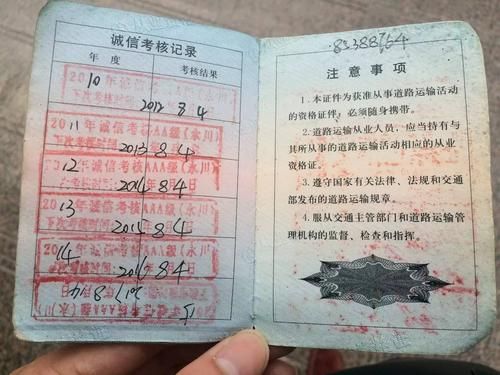 诚信考核记录
年 度 考核结果
2010年诚信考
下次考核时间 2012 8 4
2011年诚信考核AAA级(永川)
下次考核时间 2013 8 4
12年诚信考核AAA级(永川)
2014年8 4日
13年诚信考核AAA级(永川)
下次考核时间 2015 8 4
14年诚信考核AAA级(永川)
下次考核时间 2016 8 4
2017 8 4
15
83388764
注 意 事 项
1.本证件为获准从事道路运输活动
的资格证件,必须随身携带。
2.道路运输从业人员,应当持有与
其所从事的道路运输活动相应的从业
资格证。
3.遵守国家有关法律、法规和交通
部发布的道路运输规章。
4.服从交通主管部门和道路运输管
理机构的监督、检查和指挥。